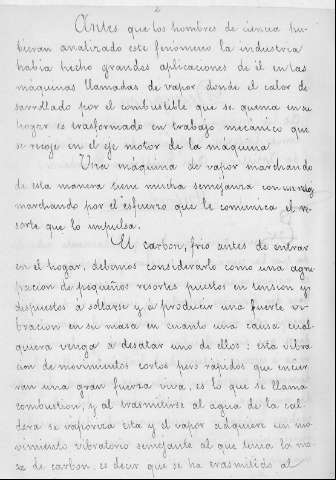 2
Antes que los hombres de ciencia hu-
bieran analizado este fenomeno la industria
habia hecho grandes aplicaciones de él en las
máquinas llamadas de vapor donde el calor de
sarrollado por el combustible que se quema en su
hogar es trasformado en trabajo mecánico que
se recoje en el eje motor de la máquina
Una máquina de vapor marchando
de esta manera tiene mucha semejanza con un reloj
marchando por el esfuerzo que le comunica el re
sorte que lo impulsa.
El carbon, frio antes de entrar
en el hogar, debemos considerarlo como una agru
pacion de pequeños resortes puestos en tension y
dispuestos á soltarse y á producir una fuerte vi
bracion en su masa en cuanto una causa cual
quiera venga á desatar uno de ellos: esta vibra
cion de movimientos cortos pero rápidos que encier
ran una gran fuerza viva, es lo que se llama
combustion, y al trasmitirse al agua de la cal
dera se vaporiza esta y el vapor adquiere un mo
vimiento vibratorio semejante al que tenia la ma
sa de carbon, es decir que se ha trasmitido al